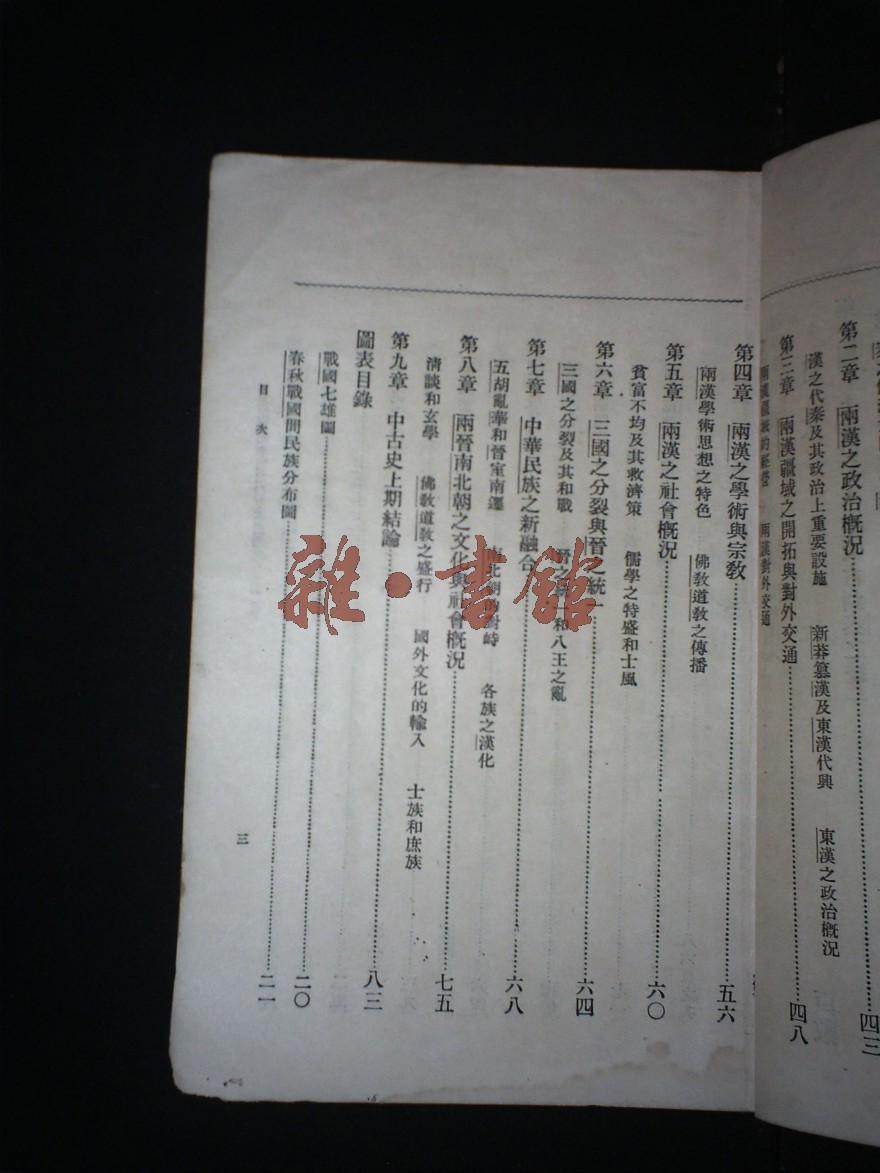 第二章 兩漢之政治概況……四三
漢之代秦及其政治上重要設施 新莽篡漢及東漢代興 東漢之政治概況
第三章 兩漢疆域之開拓與對外交通……四八
兩漢疆域的經營 兩漢對外交通
第四章 兩漢之學術與宗教……五六
兩漢學術思想之特色 佛教道教之傳播
第五章 兩漢之社會概況……六〇
貧富不均及其救濟策 儒學之特盛和士風
第六章 三國之分裂與晉之統一……六四
三國之分裂及其和戰 晉之統一和八王之亂
第七章 中華民族之新融合……六八
五胡亂華和晉室南遷 南北朝的對峙 各族之漢化
第八章 兩晉南北朝之文化與社會概況……七五
清談和玄學 佛教道教之盛行 國外文化的輸入 士族和庶族
第九章 中古史上期結論……八三
圖表目錄
戰國七雄圖……二〇
春秋戰國間民族分布圖……二一
目次
三
雜·書館